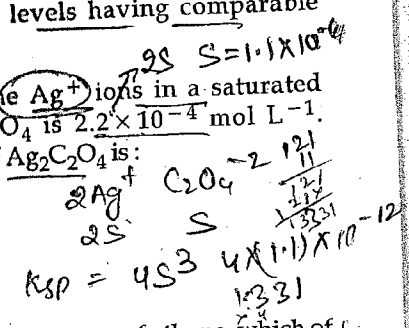 levels having comparable
2S S=1.1×10⁻⁴
e Ag⁺ ions in a saturated
O₄ is 2.2 × 10⁻⁴ mol L⁻¹.
Ag₂C₂O₄ is:
2Ag⁺ C₂O₄⁻²
2S S
121
11
121
1331
Ksp = 4S³ 4×(1.1)×10⁻¹²
1.331